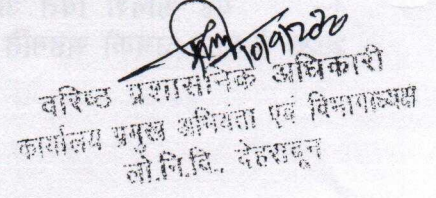 10/9/2020
वरिष्ठ प्रशासनिक अधिकारी
कार्यालय प्रमुख अभियंता एवं विभागाध्यक्ष
लो.नि.वि., देहरादून